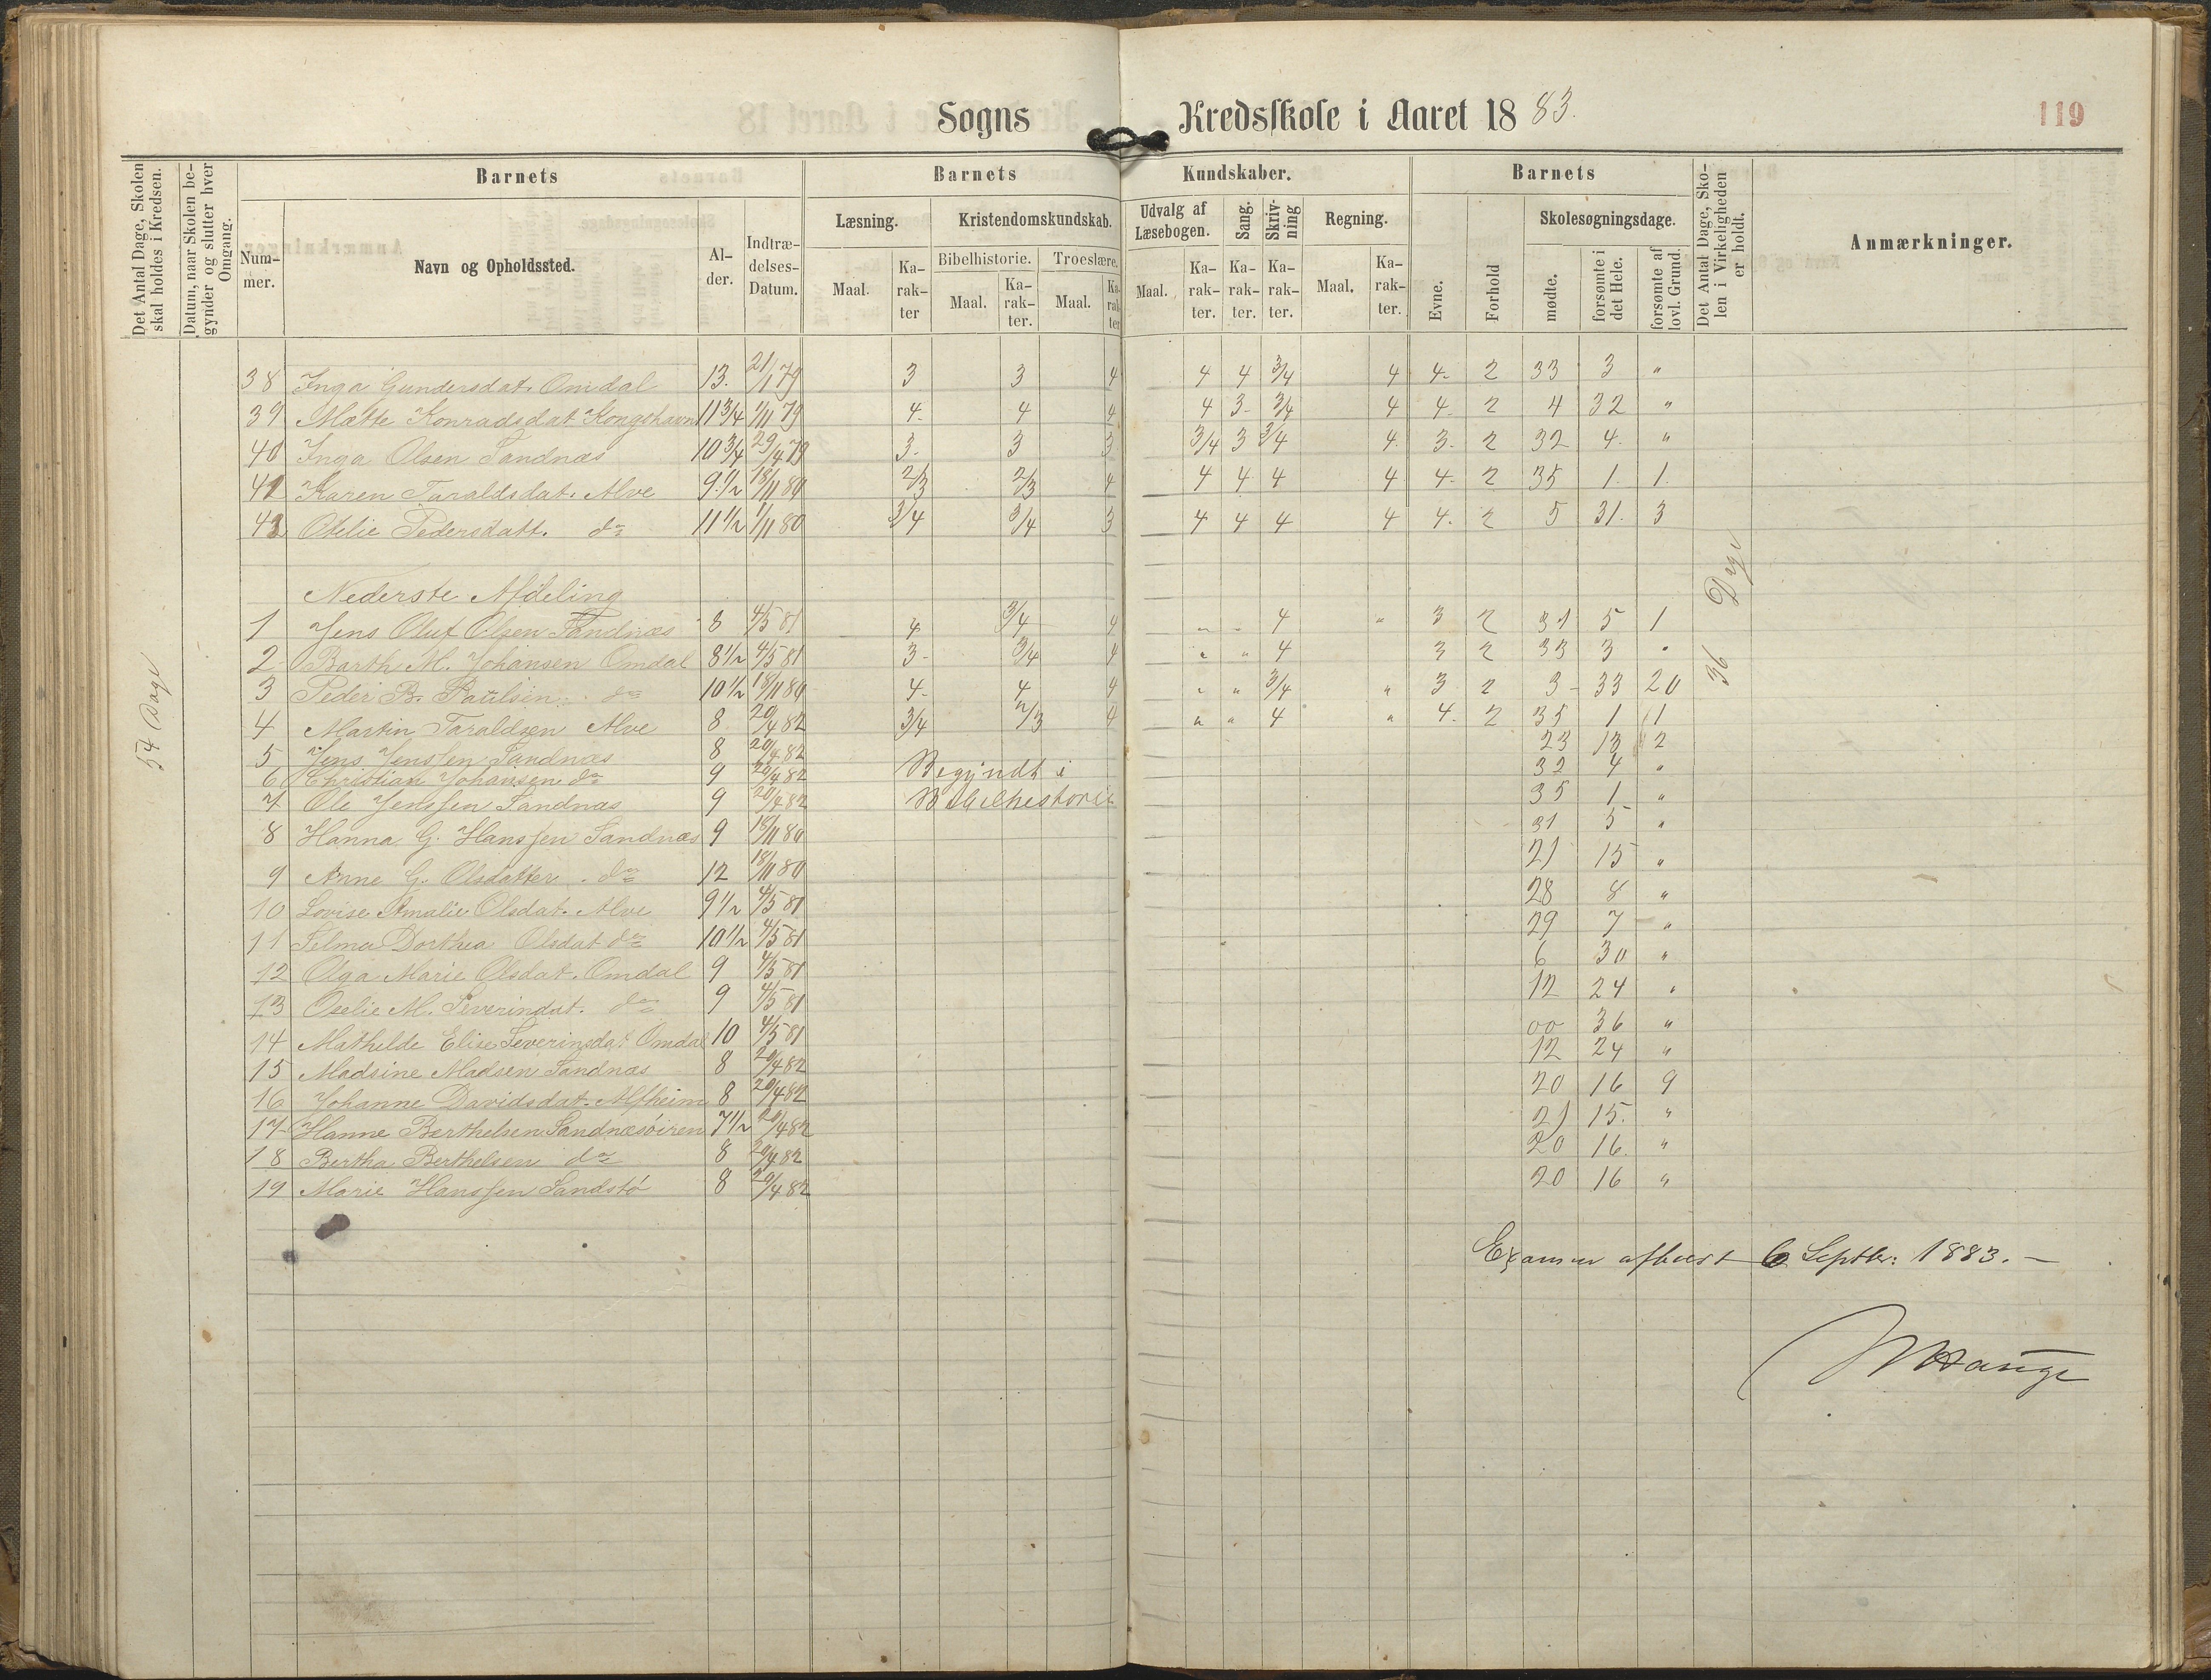 Sogns Kredsskole i Aaret 18 83.
119
Det Antal Dage, Skolen skal holdes i Kredsen.
Datum, naar Skolen begynder og slutter hver Omgang.
Barnets
Barnets Kundskaber.
Barnets
Det Antal Dage, Skolen i Virkeligheden er holdt.
Anmærkninger.
Nummer.
Navn og Opholdssted.
Alder.
Indtrædelses-Datum.
Læsning.
Kristendomskundskab.
Udvalg af Læsebogen.
Sang.
Skrivning
Regning.
Evne.
Forhold
Skolesøgningsdage.
Bibelhistorie.
Troeslære.
Maal. Karakter Maal. Karakter. Maal. Karakter Maal. Karakter. Karakter. Karakter. Maal. Karakter.
mødte.
forsømte i det Hele.
forsømte af lovl. Grund.
54 Dage
36 Dage
38 Inga Gundersdat. Omdal 13. 21/1 79 3 3 4 4 4 3/4 4 4. 2 33 3 "
39 Mætte Konradsdat Kongshavn 11 3/4 1/11 79 4. 4 4 4 3- 3/4 4 4. 2 4 32 "
40 Inga Olsen Sandnæs 10 3/4 29/4 79 3. 3 3 3/4 3 3/4 4. 3. 2 32 4. "
41 Karen Taraldsdat. Alve 9. 1/2 18/11 80 2/3 2/3 4 4 4 4 4 4. 2 35 1. 1.
42 Otelie Pedersdatt. do 11 1/2 1/11 80 3/4 3/4 3 4 4 4 4 4. 2 5 31. 3
Nederste Afdeling
1 Jens Oluf Olsen Sandnæs 8 4/5 81 4 3/4 4 " " 4 " 3 2 31 5 1
2 Barth M. Johansen Omdal 8 1/2 4/5 81 3- 3/4 4 " " 4 3 2 33 3 "
3 Peder B. Paulsen do 10 1/2 18/11 80 4- 4 4 " " 3/4 " 3 2 3- 33 20
4 Martin Taraldsen Alve 8 20/4 82 3/4 2/3 4 " " 4 " 4. 2 35 1 1
5 Jens Jenssen Sandnæs 8 20/4 82 23 13 2
6 Christian Johansen do 9 20/4 82 Begyndt i 32 4 "
7 Ole Jenssen Sandnæs 9 20/4 82 Bibelhistorie 35 1 "
8 Hanna G. Hanssen Sandnæs 9 18/11 80 31 5 "
9 Anne G. Olsdatter. do 12 18/11 80 21 15 "
10 Lovise Amalie Olsdat. Alve 9 1/2 4/5 81 28 8 "
11 Selma Dorthea Olsdat do 10 1/2 4/5 81 29 7 "
12 Olga Marie Olsdat. Omdal 9 4/5 81 6 30 "
13 Oselie M. Severindat. do 9 4/5 81 12 24 "
14 Mathilde Elise Severinsdat Omdal 10 4/5 81 00 36 "
15 Madsine Madsen Sandnæs 8 20/4 82 12 24 "
16 Johanne Davidsdat. Alfheim 8 20/4 82 20 16 9
17 Hanne Berthelsen Sandnæsøiren 7 1/2 20/4 82 21 15. "
18 Bertha Berthelsen do 8 20/4 82 20 16. "
19 Marie Hanssen Sandstø 8 20/4 82 20 16 "
Examen afholdt 6 Septbr: 1883.—
Hauge